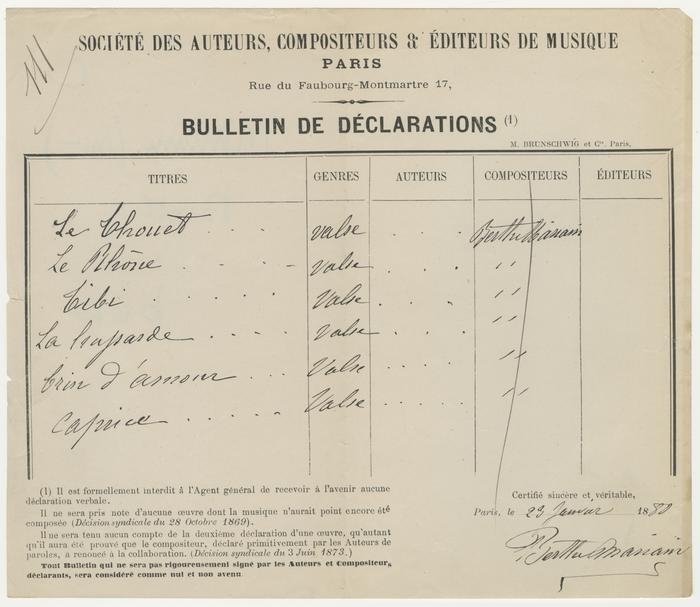 111
SOCIÉTÉ DES AUTEURS, COMPOSITEURS & ÉDITEURS DE MUSIQUE
PARIS
Rue du Faubourg-Montmartre 17,
BULLETIN DE DÉCLARATIONS (1)
M. BRUNSCHWIG et Cie. Paris.
TITRES GENRES AUTEURS COMPOSITEURS ÉDITEURS
Le valse . . .
Le Rhône valse . . . "
Bibi . . . . . Valse . . . "
La valse . . . "
d'amour . . . Valse . . . . . "
Caprice . . . . . Valse . . . . . "
(1) Il est formellement interdit à l'Agent général de recevoir à l'avenir aucune
déclaration verbale.
Il ne sera pris note d'aucune œuvre dont la musique n'aurait point encore été
composée (Décision syndicale du 28 Octobre 1869).
Il ne sera tenu aucun compte de la deuxième déclaration d'une œuvre, qu'autant
qu'il aura été prouvé que le compositeur, déclaré primitivement par les Auteurs de
paroles, a renoncé à la collaboration. (Décision syndicale du 3 Juin 1873.)
Tout Bulletin qui ne sera pas rigoureusement signé par les Auteurs et Compositeurs,
déclarants, sera considéré comme nul et non avenu.
Certifié sincère et véritable,
Paris, le 23 Janvier 1880